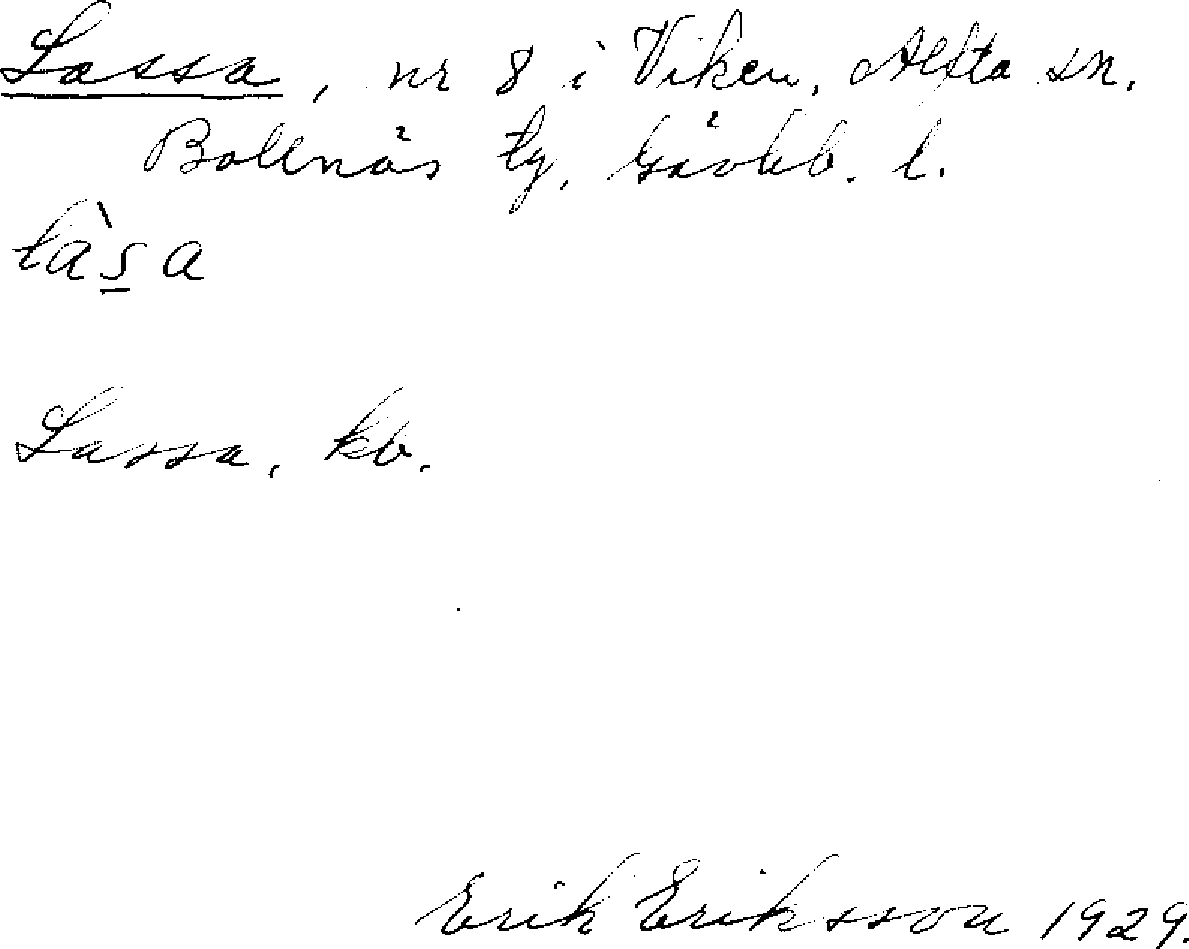 Lassa, nr 8 i Viken, Alfta sn.
Bollnäs tg, Gävleb. l.
làs̲a
Lassa, kb.
Erik Eriksson 1929.